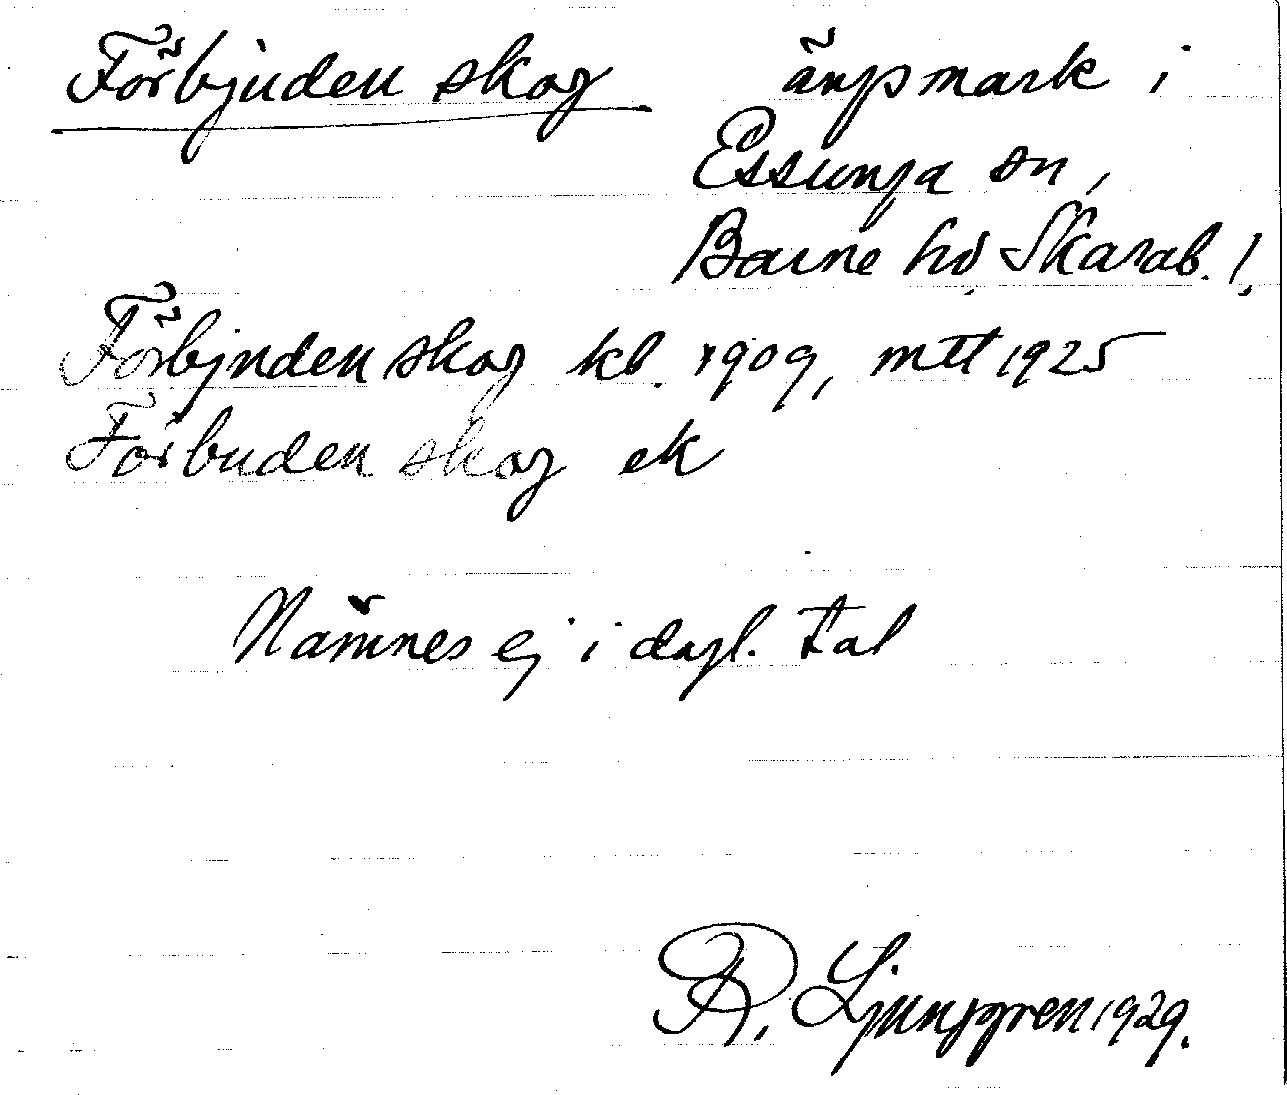 Förbjuden skog ängsmark i
Essunga sn,
Barne hd Skarab. l.
Förbjuden skog kb. 1909, mtl 1925
Förbuden skog ek
Nämnes ej i dagl. tal
R. Ljunggren 1929.